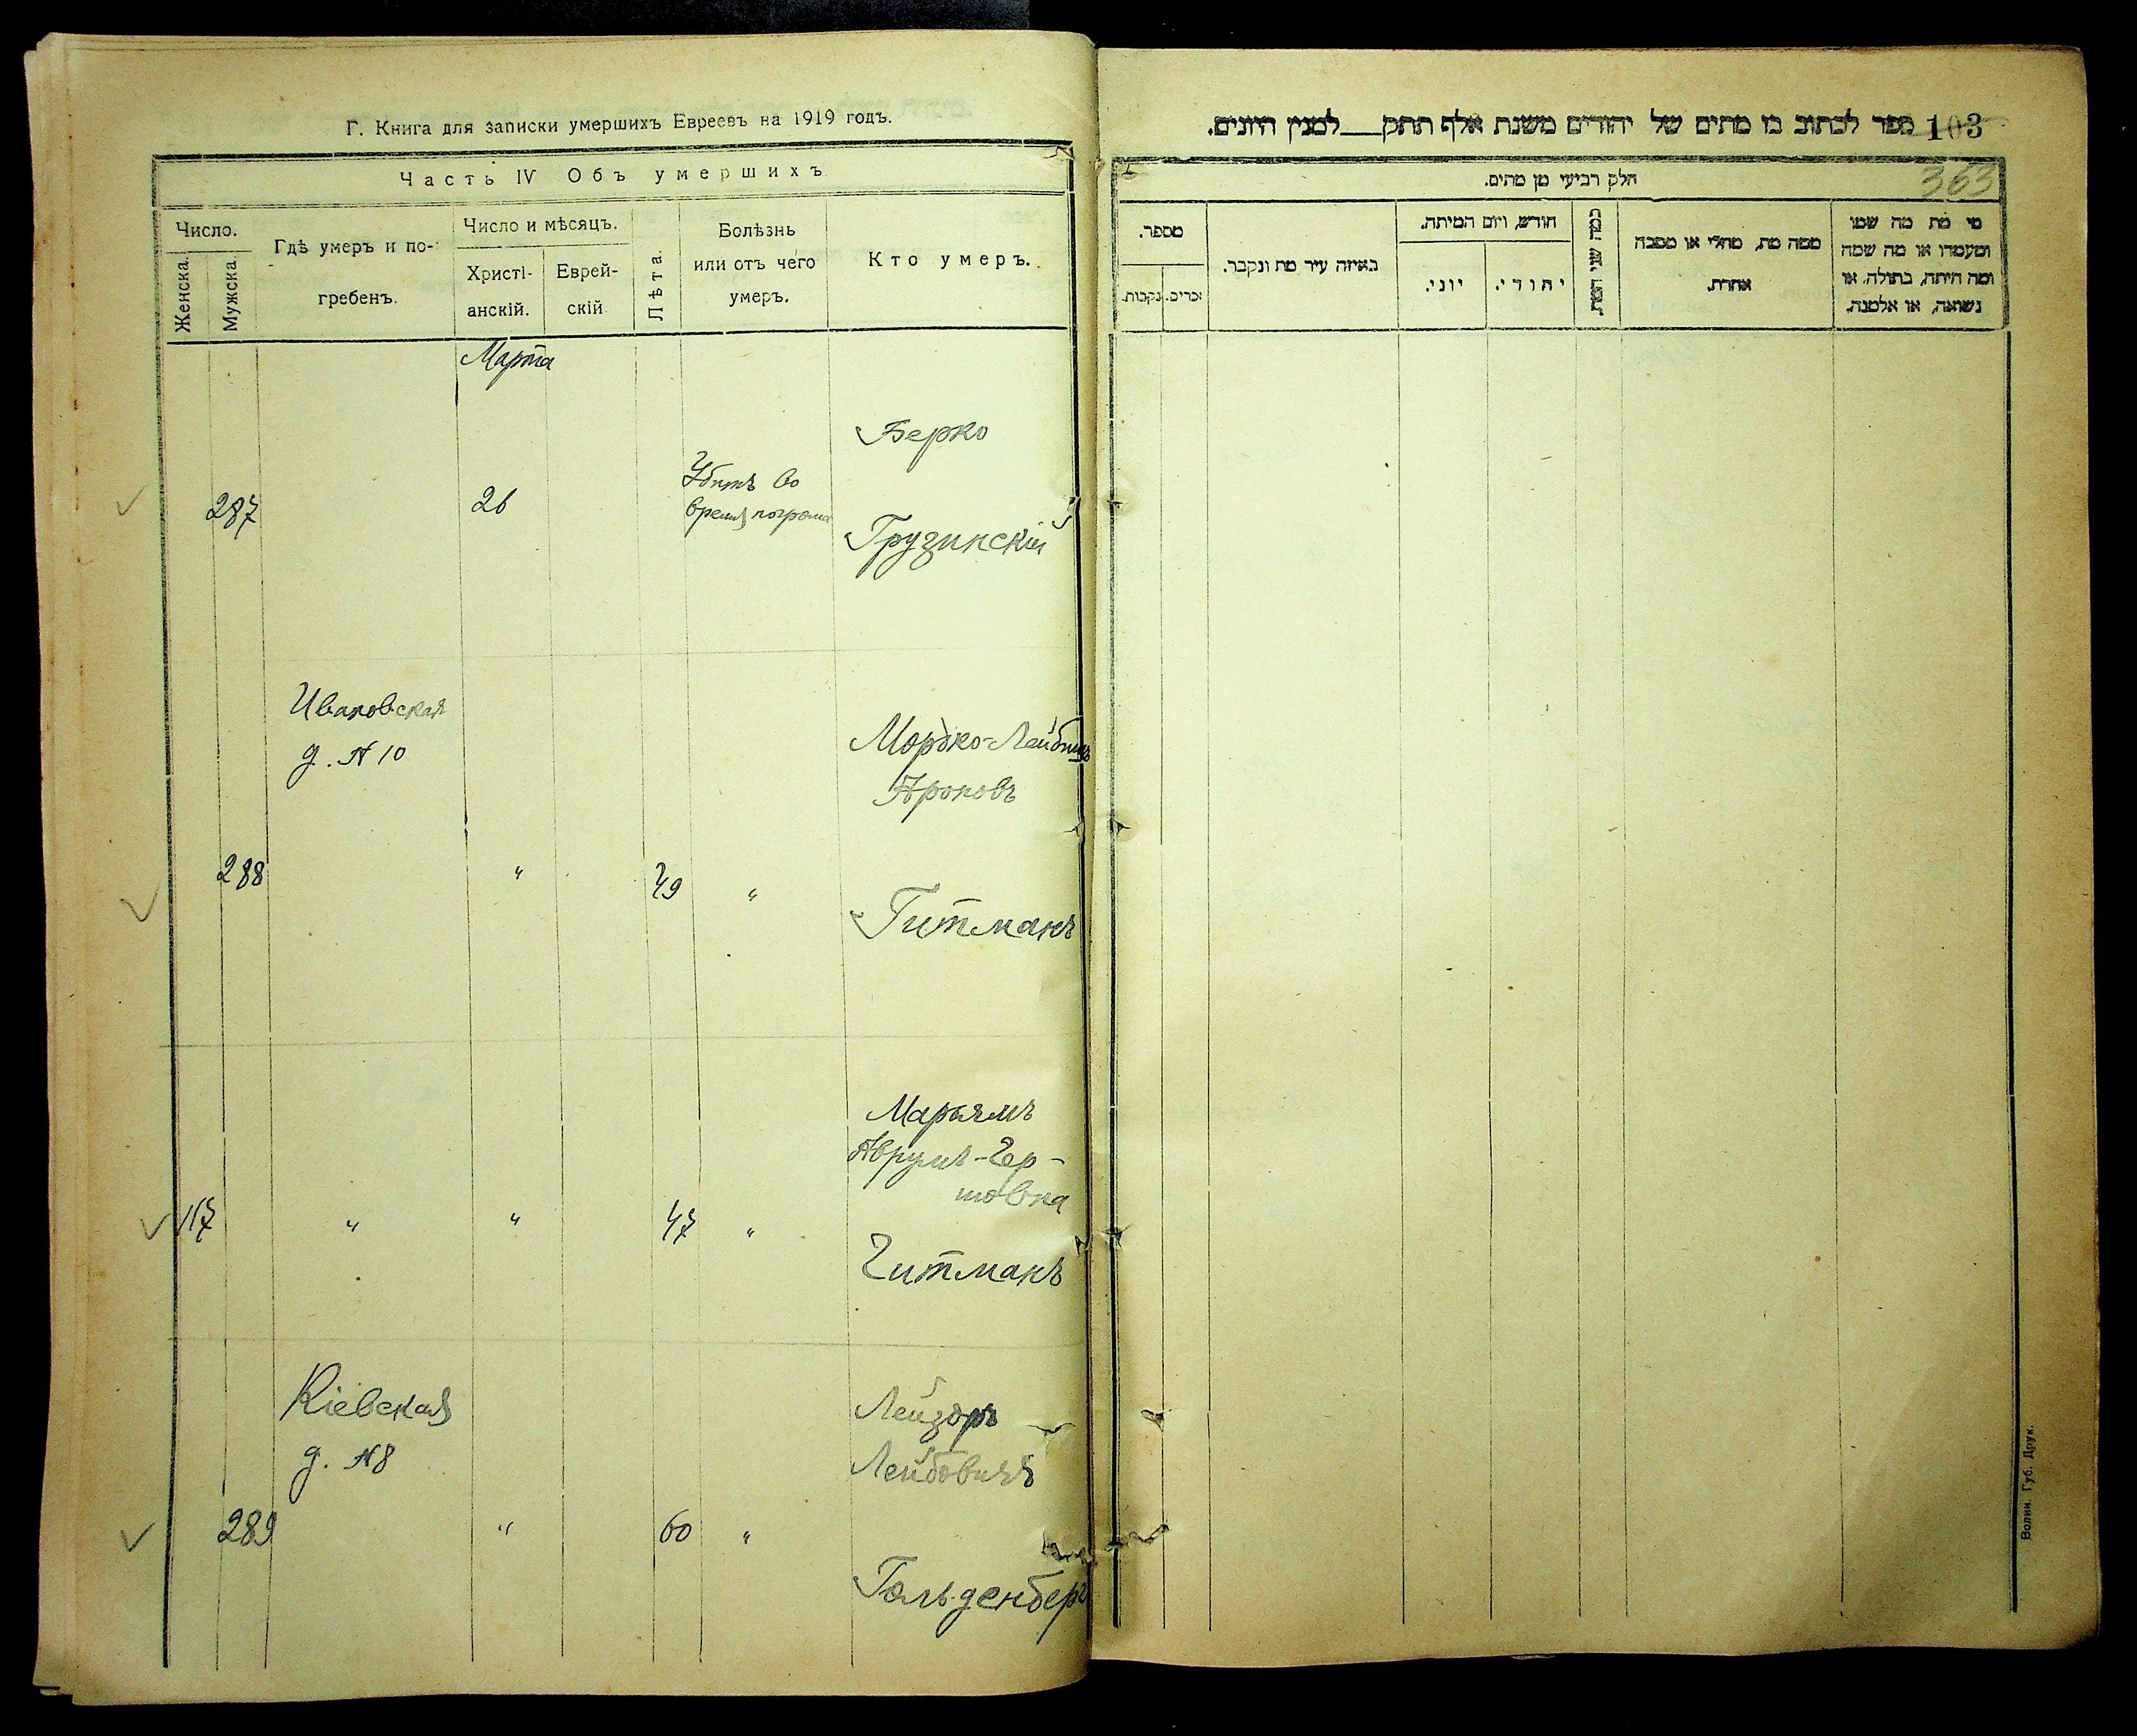 Г. Книга для записки умершихъ Евреевъ на 1919 годъ.
Часть IV Объ умершихъ
Число.
Женска.
Мужска.
Гдѣ умеръ и по-
гребенъ.
Число и мѣсяцъ.
Христі-
анскій.
Еврей-
скій.
Лѣта.
Болѣзнь
или отъ чего
умеръ.
Кто умеръ.
Марта
287
26
Убитъ во
время погрома
Берко
Грузинскій
Ивановская
д. № 10
288
"
49
"
Мордко-Лейбишъ
Ароновъ
Гитманъ
117
"
"
47
"
Марьямъ
Аврумъ-Гер-
шовна
Гитманъ
Кіевская
д. №8
289
"
60
"
Лейзоръ
Лейбовичъ
Гольденберг
103 ספר לכתוב בו מתים של יהודים משנת אלף תתק__למנין היונים.
363
חלק רביעי מן מתים.
מספר.
זכרים.
נקבות.
באיזה עיר מת ונקבר.
חודש, ויום המיתה.
יוני.
יהודי.
כמה שני המת.
ממה מת, מחלי או מסבה
אחרת.
מי מת מה שמו
ומעמדו או מה שמה
ומה היתה, בתולה, או
נשואה, או אלמנה.
Волин. Губ. Друк.